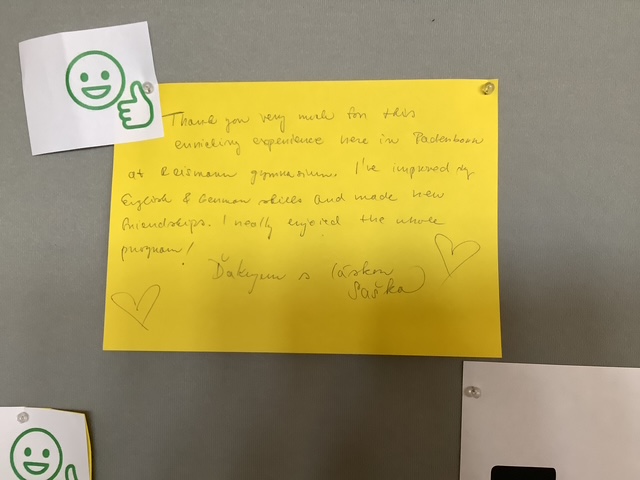 Thank you very much for this
enriching experience here in Paderborn
at Reismann gymnasium. I've improved my
English & German skills and made new
friendships. I really enjoied the whole
program!
Ďakujem s láskou
Saška